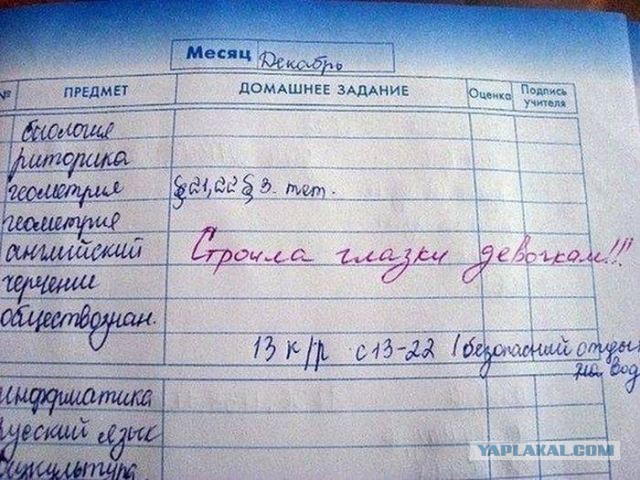 Месяц Декабрь
№ ПРЕДМЕТ ДОМАШНЕЕ ЗАДАНИЕ Оценка Подпись учителя
биология
риторика
геометрия §21,22 § 3. тет.
геометрия
английский Строила глазки девочкам!!!
черчение
обществознан.
13 к/р с 13-22 (безопасный отдых
на вод
информатика
русский язык
физкультура
YAPLAKAL.COM